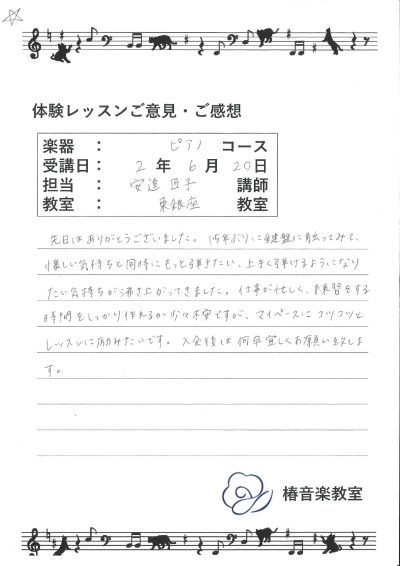 体験レッスンご意見・ご感想
楽器 ： ピアノ コース
受講日： 2 年 6 月 20 日
担当 ： 安達 匠子 講師
教室 ： 東銀座 教室
先日はありがとうございました。15年ぶりに鍵盤に触ってみて、
懐しい気持ちと同時にもっと弾きたい、上手く弾けるようになり
たい気持ちが沸き上がってきました。仕事が忙しく、練習をする
時間をしっかり作れるか少々不安ですが、マイペースにコツコツと
レッスンに励みたいです。入会後は何卒宜しくお願い致しま
す。
椿音楽教室